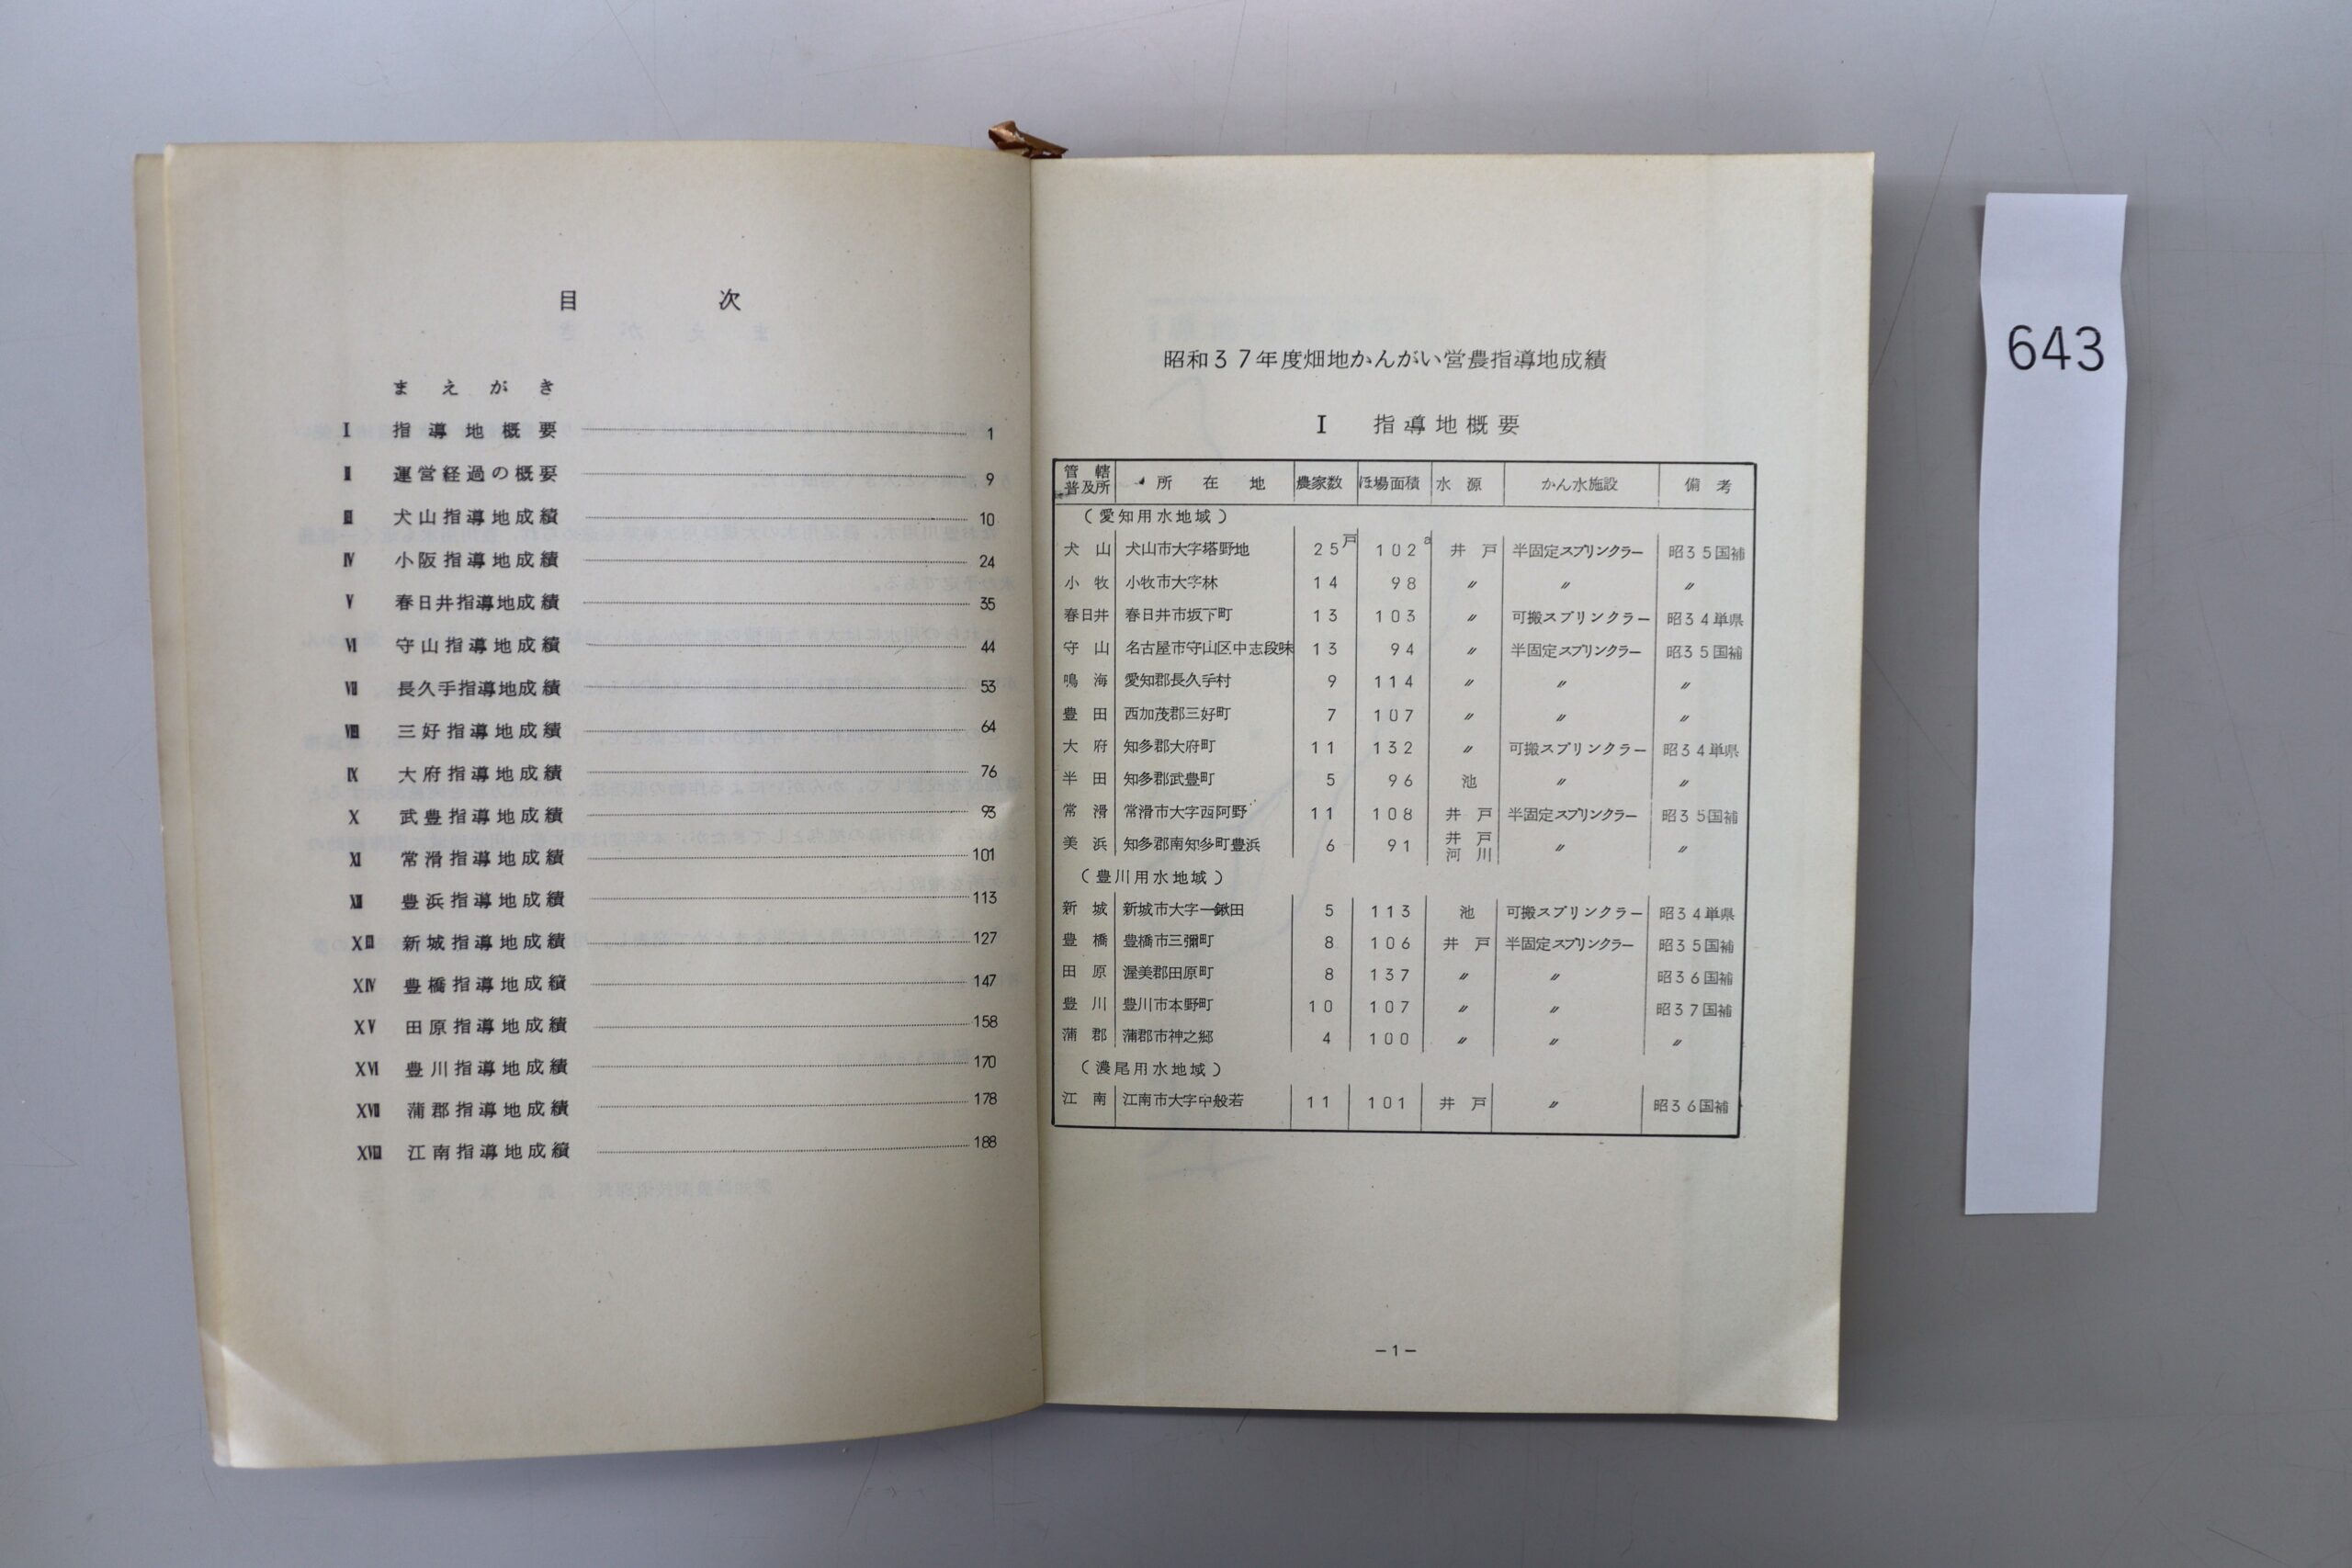 目 次
まえがき
Ⅰ 指導地概要 1
Ⅱ 運営経過の概要 9
Ⅲ 犬山指導地成績 10
Ⅳ 小阪指導地成績 24
Ⅴ 春日井指導地成績 35
Ⅵ 守山指導地成績 44
Ⅶ 長久手指導地成績 53
Ⅷ 三好指導地成績 64
Ⅸ 大府指導地成績 76
Ⅹ 武豊指導地成績 93
Ⅺ 常滑指導地成績 101
Ⅻ 豊浜指導地成績 113
ⅩⅢ 新城指導地成績 127
ⅩⅣ 豊橋指導地成績 147
ⅩⅤ 田原指導地成績 158
ⅩⅥ 豊川指導地成績 170
ⅩⅦ 蒲郡指導地成績 178
ⅩⅧ 江南指導地成績 188
昭和37年度畑地かんがい営農指導地成績
Ⅰ 指導地概要
管轄普及所 所在地 農家数 ほ場面積 水源 かん水施設 備考
(愛知用水地域)
犬山 犬山市大字塔野地 25戸 102a 井戸 半固定スプリンクラー 昭35国補
小牧 小牧市大字林 14 98 〃 〃 〃
春日井 春日井市坂下町 13 103 〃 可搬スプリンクラー 昭34単県
守山 名古屋市守山区中志段味 13 94 〃 半固定スプリンクラー 昭35国補
鳴海 愛知郡長久手村 9 114 〃 〃 〃
豊田 西加茂郡三好町 7 107 〃 〃 〃
大府 知多郡大府町 11 132 〃 可搬スプリンクラー 昭34単県
半田 知多郡武豊町 5 96 池 〃 〃
常滑 常滑市大字西阿野 11 108 井戸 半固定スプリンクラー 昭35国補
美浜 知多郡南知多町豊浜 6 91 井戸河川 〃 〃
(豊川用水地域)
新城 新城市大字一鍬田 5 113 池 可搬スプリンクラー 昭34単県
豊橋 豊橋市三彌町 8 106 井戸 半固定スプリンクラー 昭35国補
田原 渥美郡田原町 8 137 〃 〃 昭36国補
豊川 豊川市本野町 10 107 〃 〃 昭37国補
蒲郡 蒲郡市神之郷 4 100 〃 〃 〃
(濃尾用水地域)
江南 江南市大字中般若 11 101 井戸 〃 昭36国補
-1-
643